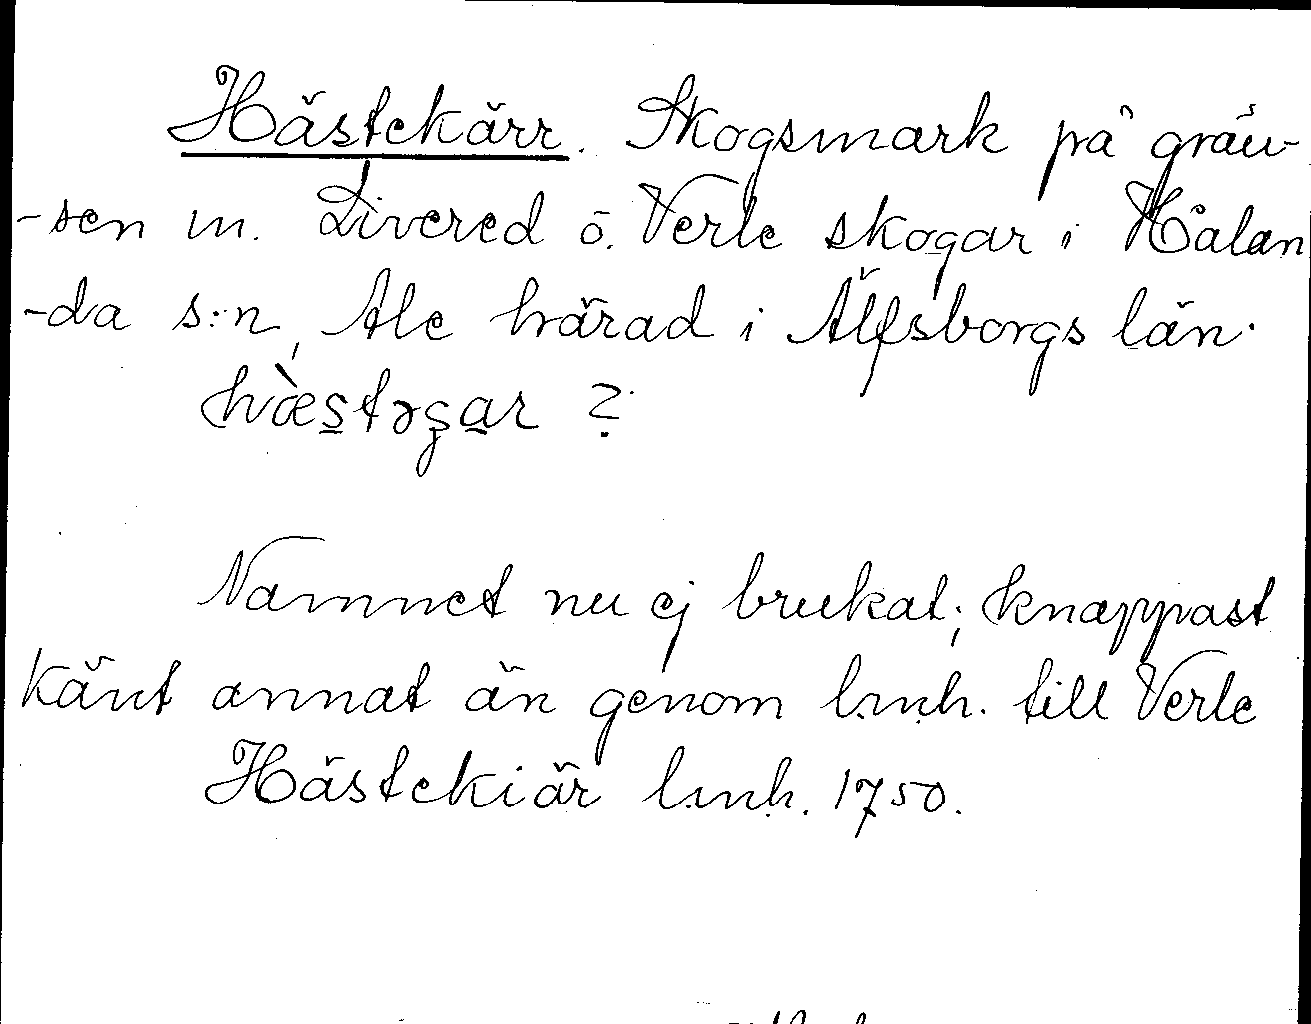 Hästekärr. Skogsmark på grän-
-sen m. Livered o. Verle skogar i Hålan
-da s:n, Ale härad i Älfsborgs län.
hæ̀stəʂar ?
Namnet nu ej brukat; knappast
känt annat än genom lmh. till Verle
Hästekiär lmh. 1750.